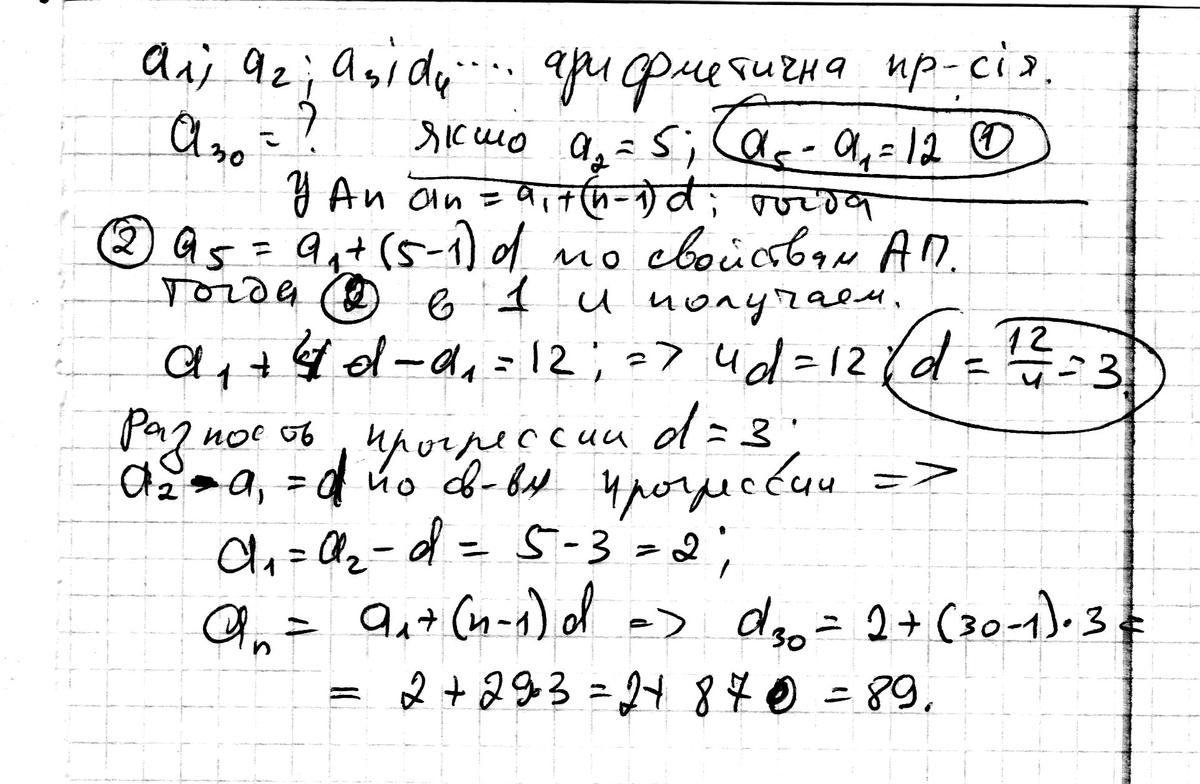 a₁; a₂; a₃; a₄.... арифметична пр-сія.
a₃₀ = ? якшо a₂ = 5; a₅ - a₁ = 12 ①
У АП an = a₁ + (n-1)d; тогда
② a₅ = a₁ + (5-1)d по свойствам АП.
Тогда ② в 1 и получаем.
a₁ + 4d - a₁ = 12; => 4d = 12; d = 12/4 = 3.
Разность прогрессии d = 3.
a₂ - a₁ = d по св-вм прогрессии =>
a₁ = a₂ - d = 5 - 3 = 2;
aₙ = a₁ + (n-1)d => a₃₀ = 2 + (30-1)·3 =
= 2 + 29·3 = 2 + 87 = 89.